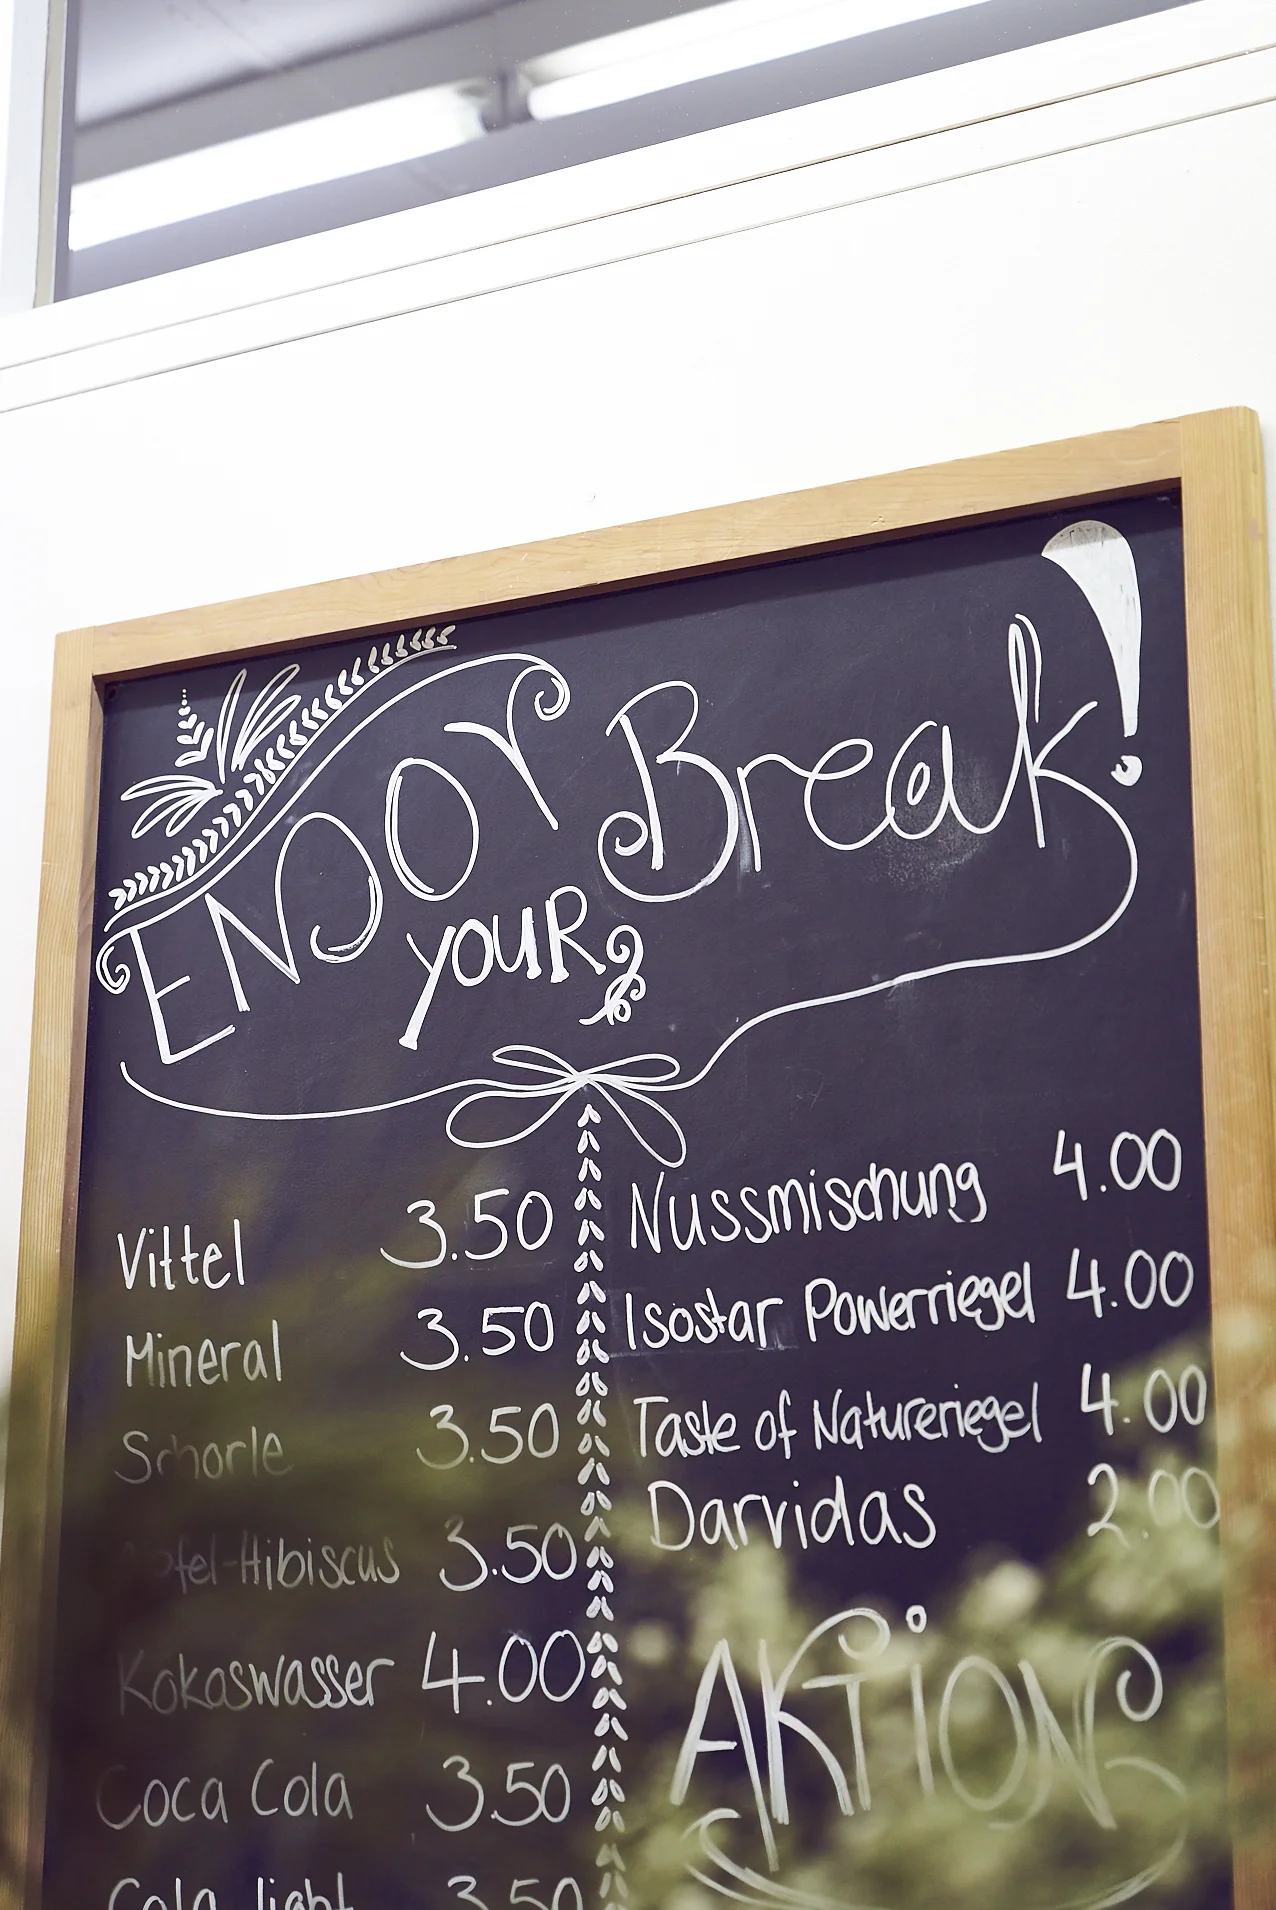 ENJOY
YOUR
Break!
Vittel 3.50
Mineral 3.50
Schorle 3.50
Apfel-Hibiscus 3.50
Kokoswasser 4.00
Coca Cola 3.50
Cola light 3.50
Nussmischung 4.00
Isostar Powerriegel 4.00
Taste of Natureriegel 4.00
Darvidas 2.00
AKTION